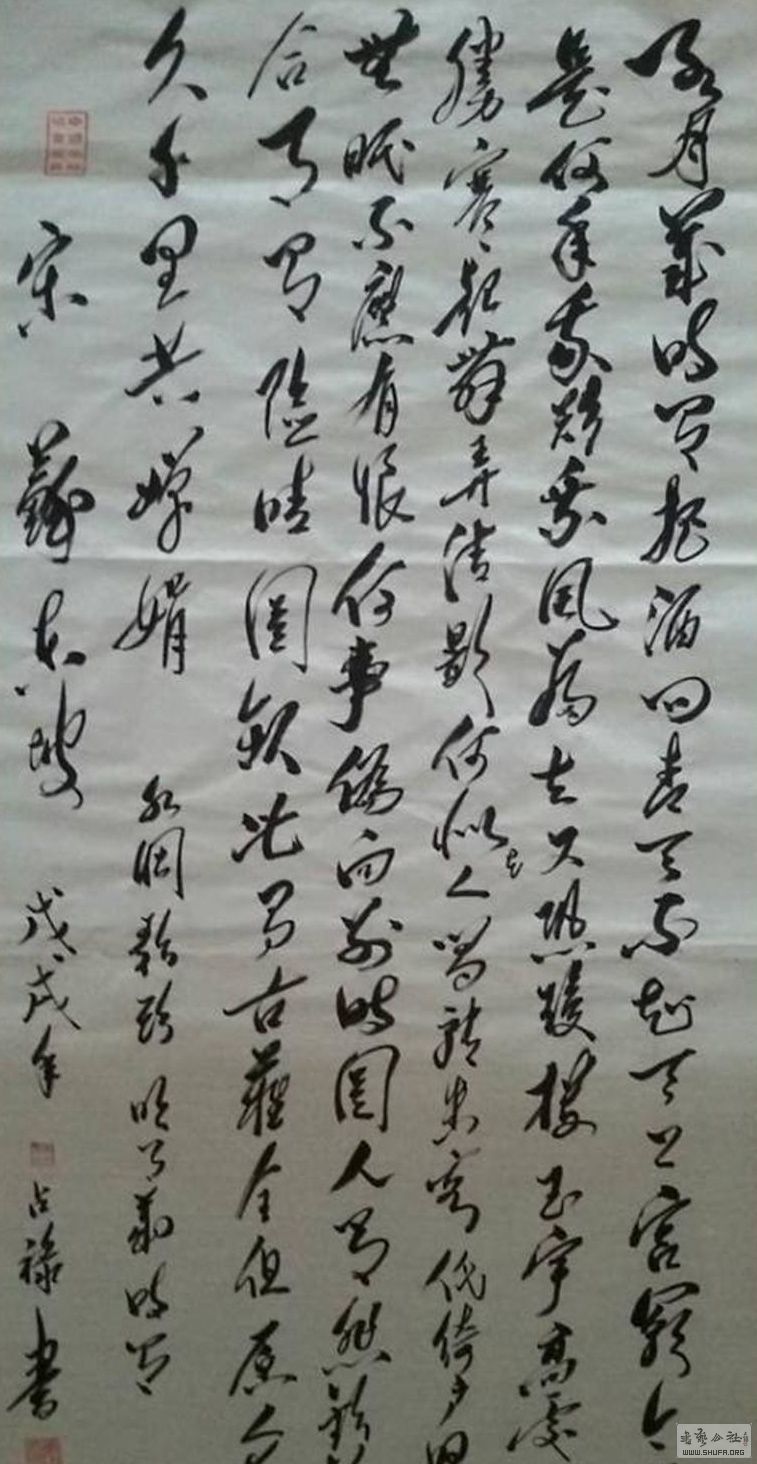 明月幾時有把酒問青天不知天上宮闕今
是何年我欲乘風歸去又恐瓊樓玉宇高處
勝寒起舞弄清影何似在人間轉朱閣低綺戶
無眠不應有恨何事偏向別時圓人有悲歡
合月有陰晴圓缺此事古難全但願人
久千里共嬋娟 水調歌頭 明月幾時有
宋 蘇東坡 戊戌年 占祿書
WWW.SHUFA.ORG